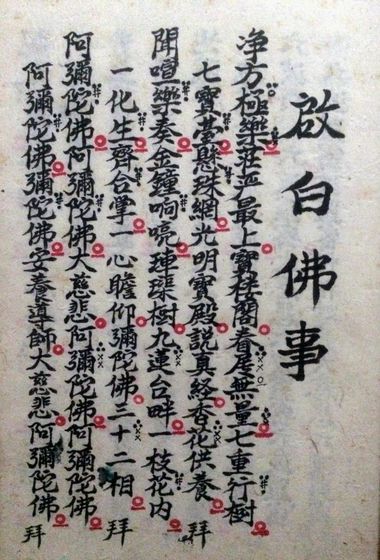 啟白佛事
净方極樂莊严最上寶柱閣眷居無量七重行樹
七寶懸珠網光明寶殿說真経香花供養 拜
聞喧樂奏金鐘响喨樹九蓮台畔一枝花內
一化生齊合掌一心瞻仰彌陀佛三十二相 拜
阿彌陀佛阿彌陀佛大慈悲阿彌陀佛阿彌陀佛
阿彌陀佛彌陀佛安養導師大慈悲阿彌陀佛 拜